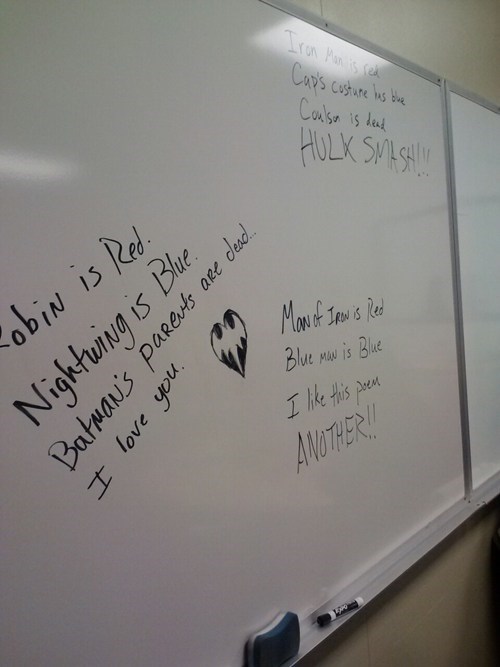 Iron Man is red
Cap's costume has blue
Coulson is dead
HULK SMASH!!!
Robin is Red.
Nightwing is Blue.
Batman's parents are dead...
I love you.
Man of Iron is Red
Blue man is Blue
I like this poem
ANOTHER!!